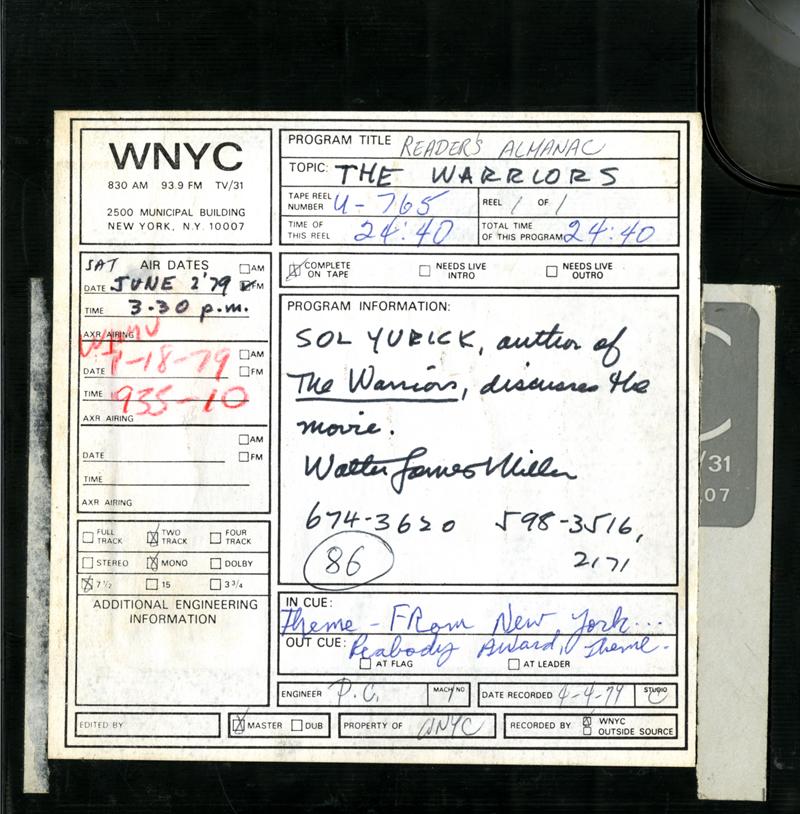 WNYC
830 AM 93.9 FM TV/31
2500 MUNICIPAL BUILDING
NEW YORK, N.Y. 10007
PROGRAM TITLE READER'S ALMANAC
TOPIC: THE WARRIORS
TAPE REEL NUMBER U-765 REEL 1 OF 1
TIME OF THIS REEL 24:40 TOTAL TIME OF THIS PROGRAM 24:40
SAT AIR DATES AM
DATE JUNE 2 '79 FM
TIME 3.30 p.m.
AXR AIRING
DATE 1-18-79 AM FM
TIME 935-10
AXR AIRING
AM
DATE FM
TIME
AXR AIRING
COMPLETE ON TAPE NEEDS LIVE INTRO NEEDS LIVE OUTRO
PROGRAM INFORMATION:
SOL YURICK, author of
The Warriors, discusses the
movie.
Walter James Miller
674-3620 598-3516,
2171
86
FULL TRACK TWO TRACK FOUR TRACK
STEREO MONO DOLBY
7 1/2 15 3 3/4
ADDITIONAL ENGINEERING
INFORMATION
IN CUE: Theme - FRom New York...
OUT CUE: Peabody Award, Theme.
AT FLAG AT LEADER
ENGINEER P.C. MACH NO 1 DATE RECORDED 4-4-79 STUDIO C
EDITED BY MASTER DUB PROPERTY OF WNYC RECORDED BY WNYC OUTSIDE SOURCE
/31
07